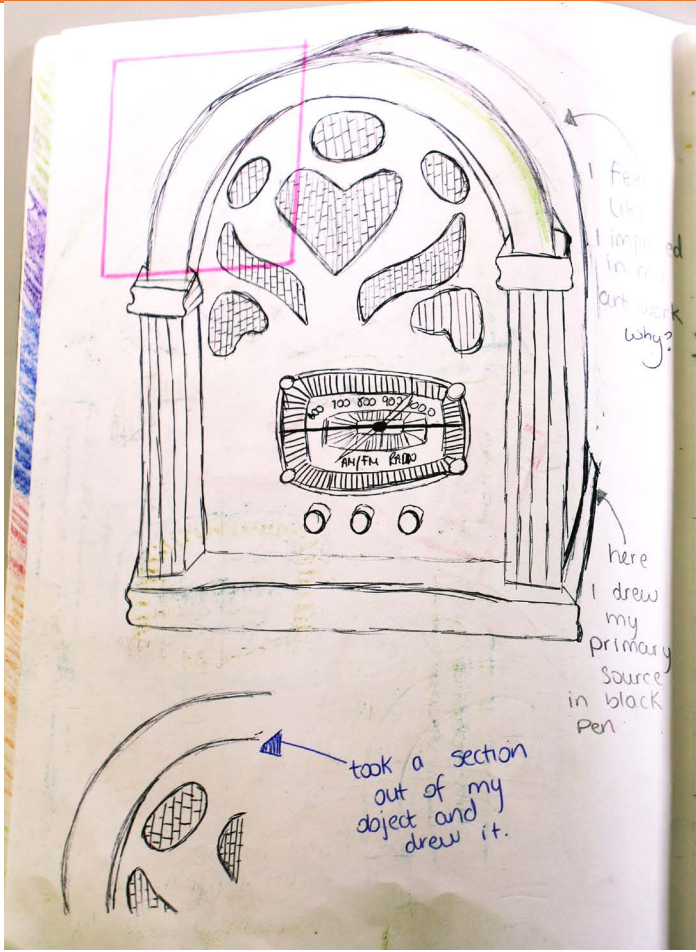 I feel
like
I improved
in my
art work
why?
600 700 800 900 1000
AM/FM RADIO
here
I drew
my
primary
source
in black
pen
took a section
out of my
object and
drew it.